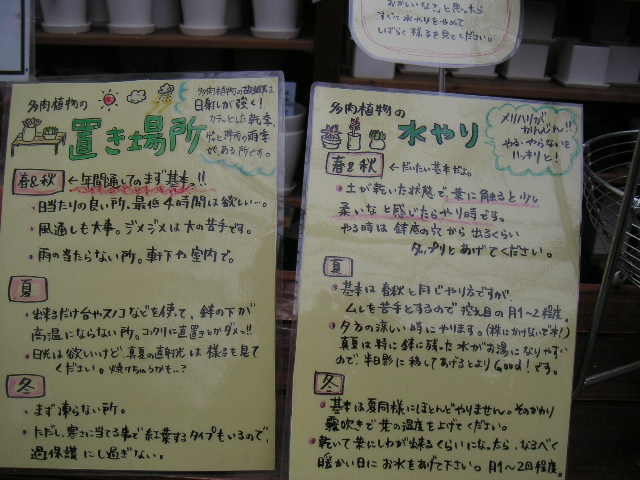 おかしいな?と思ったら
すぐて水やりをやめて
しばらく様子を見てください。
多肉植物の
置き場所
多肉植物の故郷は
日射しが強く!
カラッとした乾季
と
雨季
がある所です。
春&秋 ←年間通してのまず基本!!
・日当たりの良い所。最低4時間は欲しい…。
・風通しも大事。ジメジメは大の苦手です。
・雨の当たらない所。軒下や室内で。
夏
・出来るだけ台やスノコなどを使って、鉢の下が
高温にならない所。コンクリに直置きとかダメッ!!
・日光は欲しいけど、真夏の直射光は様子を見て
ください。焼けちゃうかも…?
冬
・まず凍らない所。
・ただし、寒さに当てる事で紅葉するタイプもいるので、
過保護にし過ぎない。
多肉植物の
水やり
メリハリが
かんじん!!
やる・やらないを
ハッキリと!
春&秋 ←だいたい基本だよ。
・土が乾いた状態で、葉に触ると少し
柔いなと感じたらやり時です。
やる時は鉢底の穴から出るくらい
タップリとあげてください。
夏
・基本は春秋と同じやり方ですが、
ムレを苦手とするので控え目の月1〜2程度。
・夕方の涼しい時にやります。(株にかけないで水!)
真夏は特に鉢に残った水がお湯になりやすい
ので、半日影に移してあげるとよりGood!です。
冬
・基本は夏同様にほとんどやりません。そのかわり
霧吹きで葉の湿度を上げてください。
・乾いて葉にしわが出来るくらいになったら、なるべく
暖かい日にお水をあげて下さい。月1〜2回程度。